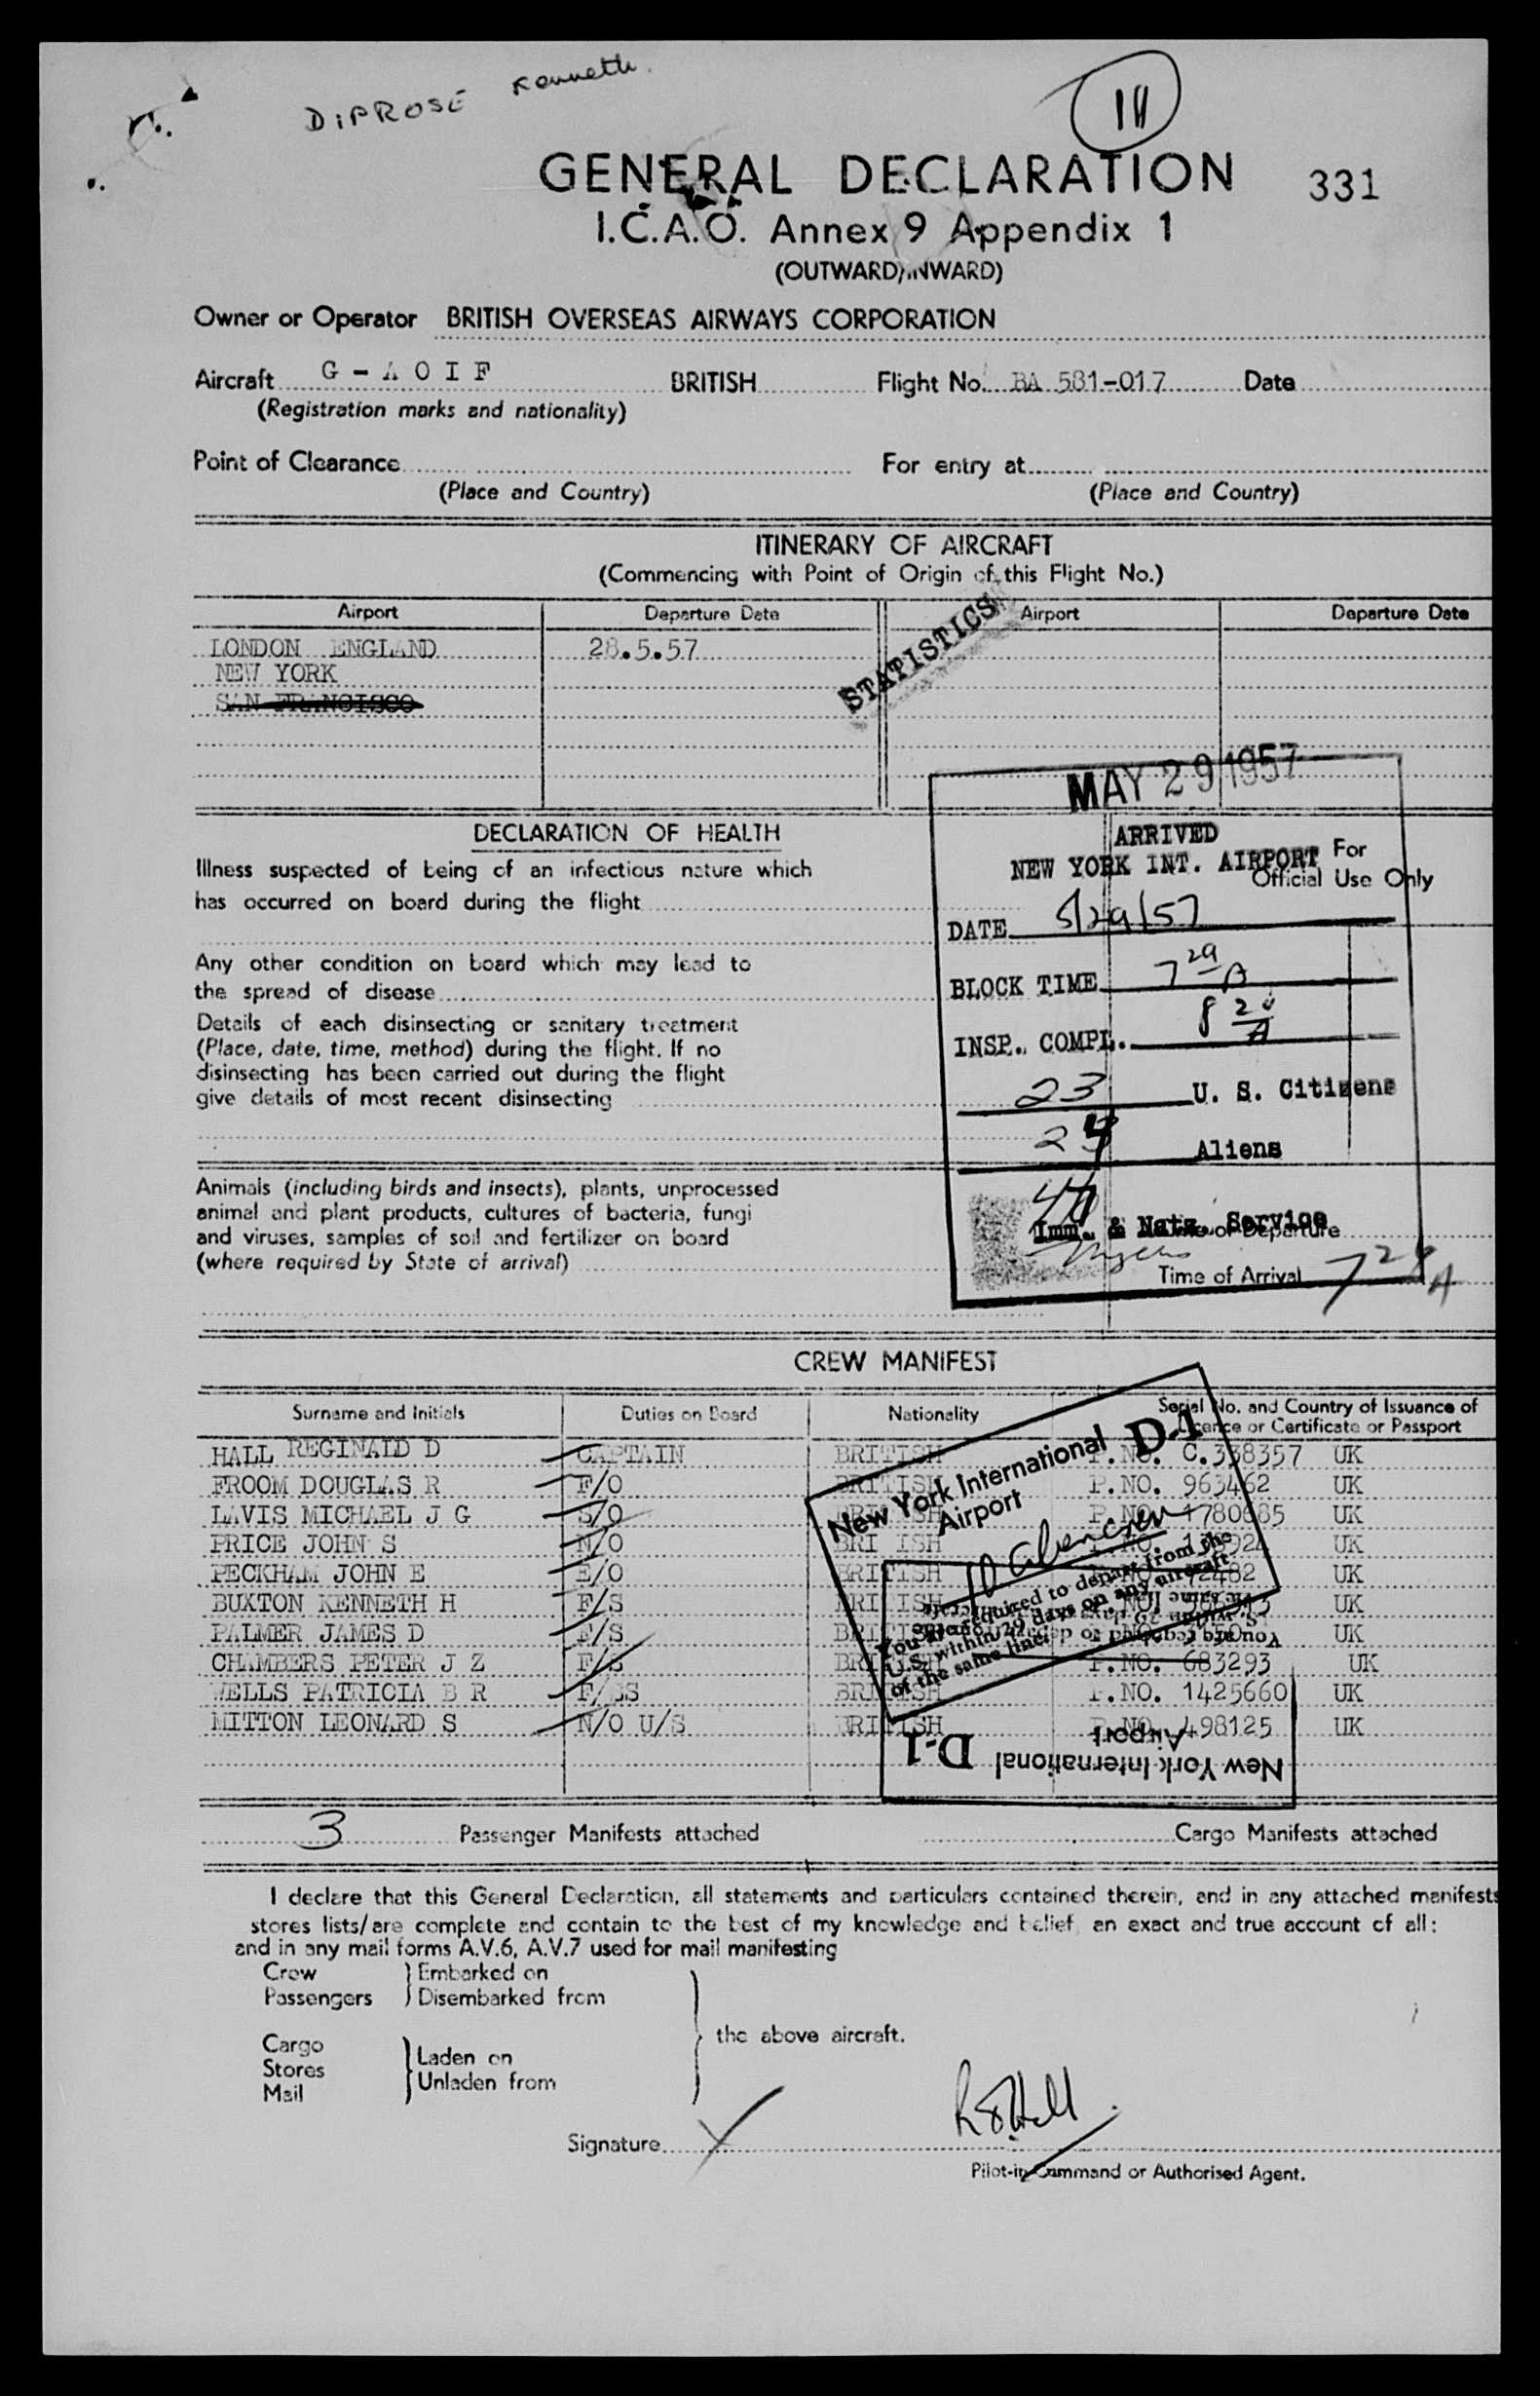 DiPROSE Kenneth.
GENERAL DECLARATION 331
I.C.A.O. Annex 9 Appendix 1
(OUTWARD/INWARD)
Owner or Operator BRITISH OVERSEAS AIRWAYS CORPORATION
Aircraft G - A O I F BRITISH Flight No. BA 581-017 Date
(Registration marks and nationality)
Point of Clearance For entry at
(Place and Country) (Place and Country)
ITINERARY OF AIRCRAFT
(Commencing with Point of Origin of this Flight No.)
Airport Departure Date Airport Departure Date
LONDON ENGLAND 28.5.57
NEW YORK
SAN FRANCISCO
STATISTICS
MAY 29 1957
DECLARATION OF HEALTH
ARRIVED
NEW YORK INT. AIRPORT
For
Official Use Only
Illness suspected of being of an infectious nature which
has occurred on board during the flight
DATE 5/29/57
Any other condition on board which may lead to
the spread of disease
BLOCK TIME 7 29 A
Details of each disinsecting or sanitary treatment
(Place, date, time, method) during the flight. If no
disinsecting has been carried out during the flight
give details of most recent disinsecting
INSP. COMPL. 8 20 A
23 U. S. Citizens
24 Aliens
Animals (including birds and insects), plants, unprocessed
animal and plant products, cultures of bacteria, fungi
and viruses, samples of soil and fertilizer on board
(where required by State of arrival)
Imm. & Natz. Service
Time of Departure
Time of Arrival 7 29 A
CREW MANIFEST
Surname and Initials Duties on Board Nationality Serial No. and Country of Issuance of
Licence or Certificate or Passport
HALL REGINALD D CAPTAIN BRITISH P.NO. C.338357 UK
FROOM DOUGLAS R F/O BRITISH P.NO. 963462 UK
LAVIS MICHAEL J G S/O BRITISH P.NO. 1780685 UK
PRICE JOHN S N/O BRITISH P.NO. UK
PECKHAM JOHN E E/O BRITISH UK
BUXTON KENNETH H F/S BRITISH UK
PALMER JAMES D F/S BRITISH UK
CHAMBERS PETER J Z F/S BRITISH P.NO. 683293 UK
WELLS PATRICIA B R F/SS BRITISH P.NO. 1425660 UK
MITTON LEONARD S N/O U/S BRITISH P.NO. 498125 UK
New York International D-1
Airport
10 alien crew
You are required to depart from the
U.S. within 29 days on any aircraft
of the same line.
You are required to depart
U.S. within 29 days
of the same line
New York International D-1
Airport
3 Passenger Manifests attached Cargo Manifests attached
I declare that this General Declaration, all statements and particulars contained therein, and in any attached manifests
stores lists/are complete and contain to the best of my knowledge and belief an exact and true account of all:
and in any mail forms A.V.6, A.V.7 used for mail manifesting
Crew } Embarked on
Passengers } Disembarked from
the above aircraft.
Cargo
Stores } Laden on
Mail } Unladen from
Signature R D Hall
Pilot-in-Command or Authorised Agent.